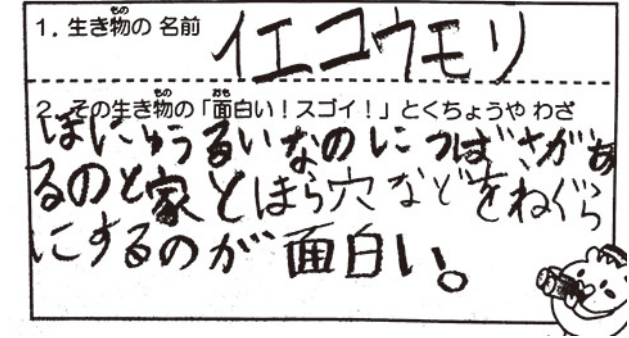 1. 生き物の 名前 イエコウモリ
2. その生き物の「面白い！スゴイ！」とくちょうや わざ
ほにゅうるいなのにつばさがあ
るのと家とほら穴などをねぐら
にするのが面白い。